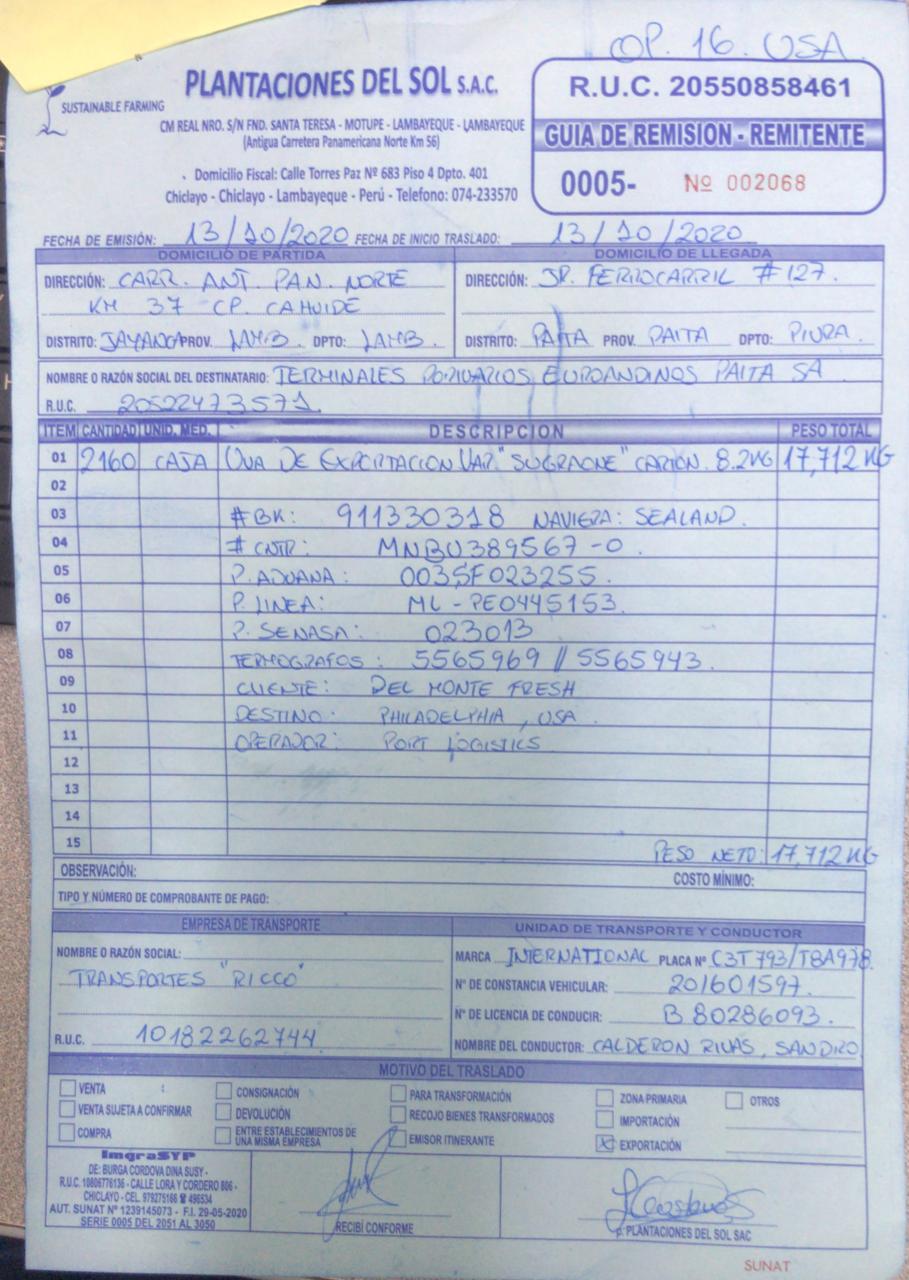 OP. 16. USA
SUSTAINABLE FARMING
PLANTACIONES DEL SOL S.A.C.
CM REAL NRO. S/N FND. SANTA TERESA - MOTUPE - LAMBAYEQUE - LAMBAYEQUE
(Antigua Carretera Panamericana Norte Km 56)
Domicilio Fiscal: Calle Torres Paz Nº 683 Piso 4 Dpto. 401
Chiclayo - Chiclayo - Lambayeque - Perú - Telefono: 074-233570
R.U.C. 20550858461
GUIA DE REMISION - REMITENTE
0005- Nº 002068
FECHA DE EMISIÓN: 13/10/2020 FECHA DE INICIO TRASLADO: 13/10/2020
DOMICILIO DE PARTIDA
DIRECCIÓN: CARR. ANT. PAN. NORTE
KM 37 CP. CAHUIDE
DISTRITO: JAYANCA PROV. LAMB. DPTO: LAMB.
DOMICILIO DE LLEGADA
DIRECCIÓN: JR. FERROCARRIL #127.
DISTRITO: PAITA PROV. PAITA DPTO: PIURA.
NOMBRE O RAZÓN SOCIAL DEL DESTINATARIO: TERMINALES PORTUARIOS EUROANDINOS PAITA SA
R.U.C. 20522473571.
ITEM CANTIDAD UNID. MED. DESCRIPCION PESO TOTAL
01 2160 CAJA UVA DE EXPORTACION VAR. "SUGRAONE" CARTON. 8.2KG 17,712 KG
02
03 #BK: 911330318 NAVIERA: SEALAND.
04 # CNTR: MNBU389567-0.
05 P. ADUANA: 003SF023255.
06 P. LINEA: ML-PE0445153.
07 P. SENASA: 023013
08 TERMOGRAFOS: 5565969 // 5565943.
09 CLIENTE: DEL MONTE FRESH
10 DESTINO: PHILADELPHIA, USA.
11 OPERADOR: PORT LOGISTICS
12
13
14
15 PESO NETO: 17,712 KG
OBSERVACIÓN:
COSTO MÍNIMO:
TIPO Y NÚMERO DE COMPROBANTE DE PAGO:
EMPRESA DE TRANSPORTE
NOMBRE O RAZÓN SOCIAL:
TRANSPORTES "RICCO"
R.U.C. 10182262744
UNIDAD DE TRANSPORTE Y CONDUCTOR
MARCA INTERNATIONAL PLACA Nº C3T793/TBA978.
Nº DE CONSTANCIA VEHICULAR: 201601597.
Nº DE LICENCIA DE CONDUCIR: B 80286093.
NOMBRE DEL CONDUCTOR: CALDERON RIVAS, SANDRO
MOTIVO DEL TRASLADO
VENTA
VENTA SUJETA A CONFIRMAR
COMPRA
CONSIGNACIÓN
DEVOLUCIÓN
ENTRE ESTABLECIMIENTOS DE
UNA MISMA EMPRESA
PARA TRANSFORMACIÓN
RECOJO BIENES TRANSFORMADOS
EMISOR ITINERANTE
ZONA PRIMARIA
IMPORTACIÓN
X EXPORTACIÓN
OTROS
ImgraSYP
DE: BURGA CORDOVA DINA SUSY -
R.U.C. 10806776136 - CALLE LORA Y CORDERO 806 -
CHICLAYO - CEL. 979275166 ☎ 496534
AUT. SUNAT Nº 1239145073 - F.I. 29-05-2020
SERIE 0005 DEL 2051 AL 3050
RECIBÍ CONFORME
p. PLANTACIONES DEL SOL SAC
SUNAT